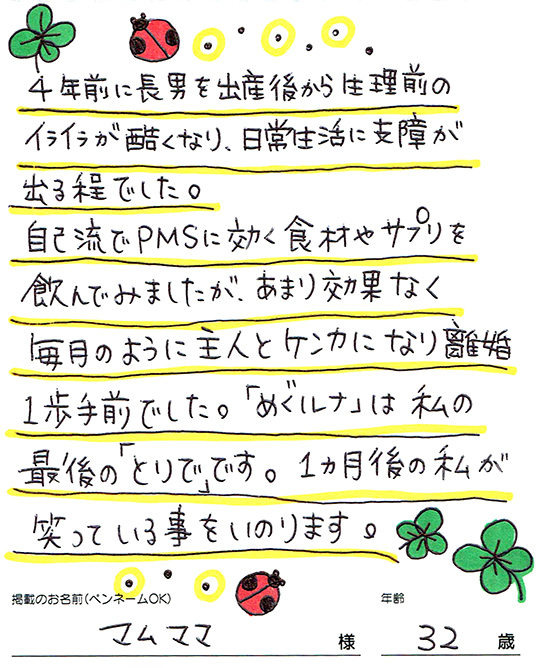 4年前に長男を出産後から生理前の
イライラが酷くなり、日常生活に支障が
出る程でした。
自己流でPMSに効く食材やサプリを
飲んでみましたが、あまり効果なく
毎月のように主人とケンカになり離婚
1歩手前でした。「めぐルナ」は私の
最後の「とりで」です。1ヵ月後の私が
笑っている事をいのります。
掲載のお名前(ペンネームOK) 年齢
マムママ 様 32 歳